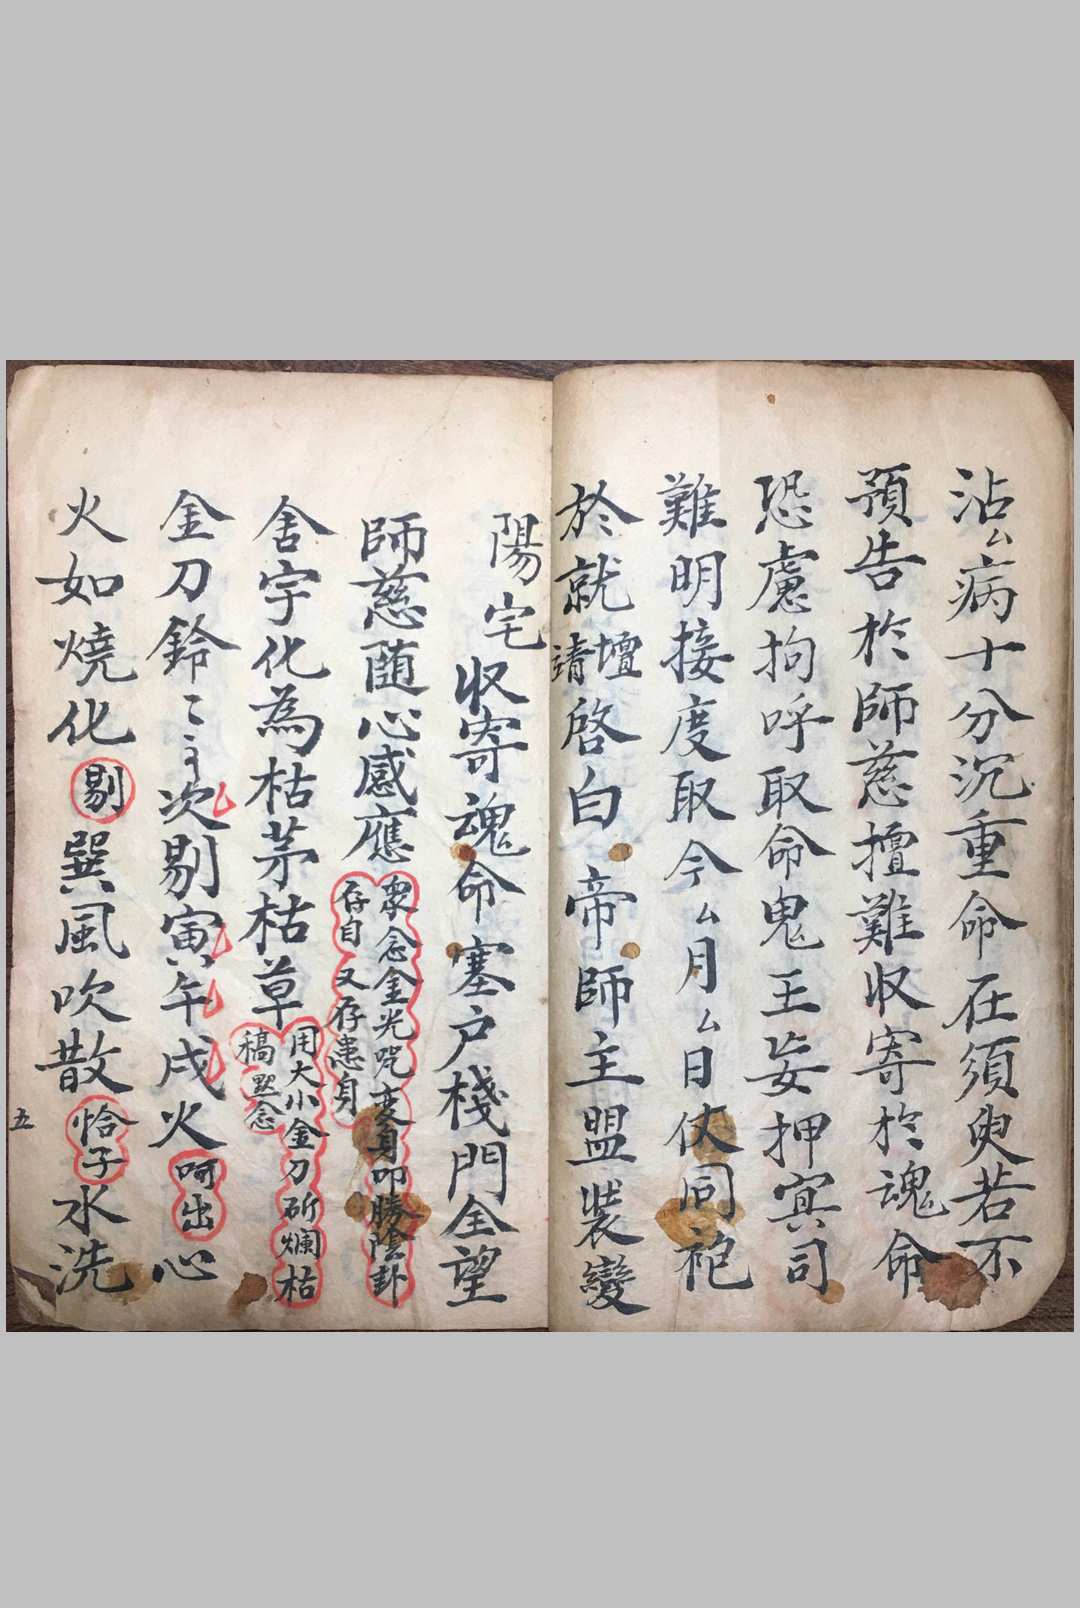 沾厶病十分沉重命在須臾若不
預告於師慈擅難収寄於魂命
恐慮拘呼取命鬼王妄押寘司
難明接度取今厶月厶日仗同袍
於就靖壇啓白帝師主盟裝變
陽宅収寄魂命塞户棧門全望
師慈随心感應
衆念金光咒変身叩勝陰卦
存自又存患身
舍宇化為枯茅枯草
用大小金刀斫爛枯
稿黙念
金刀鈴〻次剔寅午戌火呵出心
火如燒化剔巽風吹散恰子水洗
五